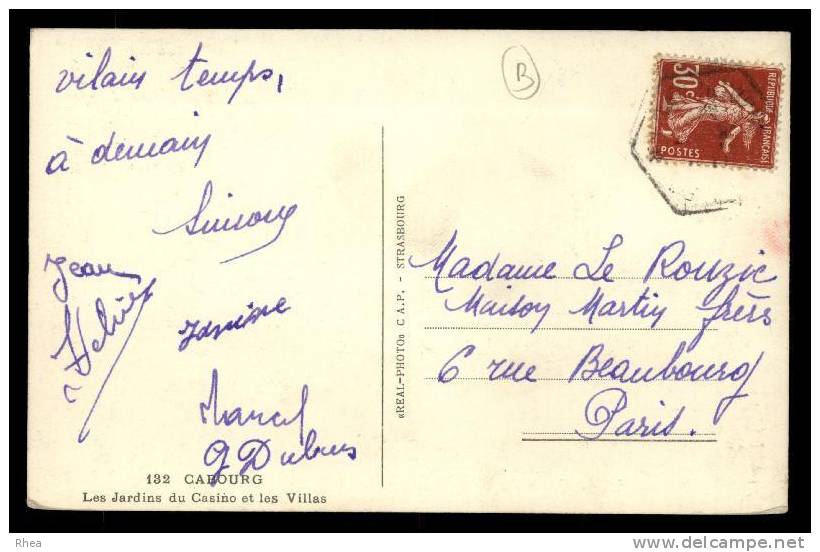 vilain temps,
à demain
Simone
Jean
Janine
Marcel
G Dubus
132 CABOURG
Les Jardins du Casino et les Villas
«REAL-PHOTO» C A.P. - STRASBOURG
B
30c
REPUBLIQUE FRANÇAISE
POSTES
Madame Le Rouzic
Maison Martin frères
6 rue Beaubourg
Paris.
Rhea
www.delcampe.net